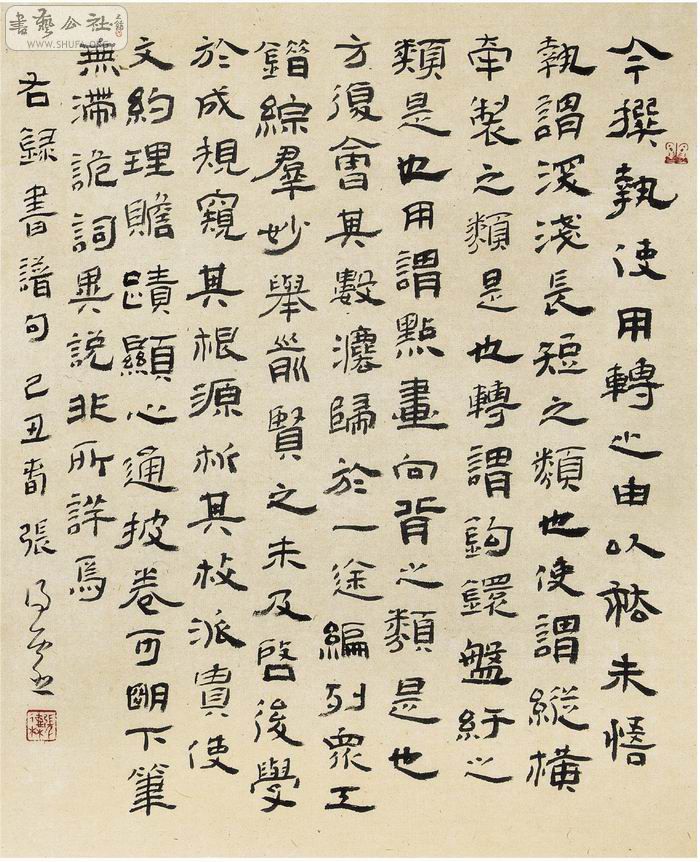 書藝公社
今撰執使用轉之由以祛未悟
執謂深淺長短之類也使謂縱橫
牽製之類是也轉謂鈎鐶盤紆之
類是也用謂點畫向背之類是也
方復會其數灋歸於一途編列眾工
錯綜羣妙舉前賢之未及啓後學
於成規窺其根源析其枝派貴使
文約理贍蹟顯心通披卷可朙下筆
無滯詭詞異說非所詳焉
右錄書譜句己丑春張